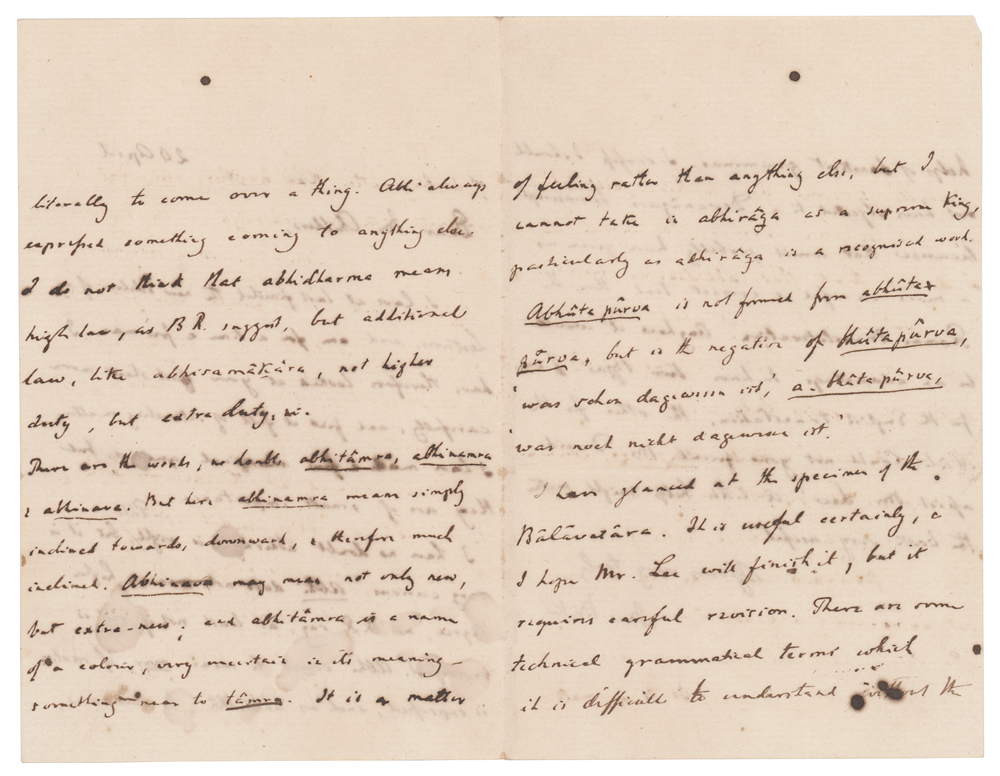 literally to come over a thing. Abhi always
expressed something coming to anything else.
I do not think that abhidharma means
high law, as B R. suggest, but additional
law, like abhisamâkâra, not higher
duty, but extra duty,
There are the words, no doubt abhitâmra, abhinamra
& abhinava. But here abhinamra means simply
inclined towards, downward, & therefore much
inclined. Abhinava may mean not only new,
but extra-new; and abhitâmra is a name
of a colour, very uncertain in its meaning –
something near to tâmra. It is a matter
of feeling rather than anything else, but I
cannot take in abhirâga as a supreme King,
particularly as adhirâga is a recognised word.
Abhûta pûrva is not formed from abhûta x
pûrva, but is the negative of bhûta pûrva,
'was schon dagewesen ist,' a-bhûta pûrva,
'was noch nicht dagewesen ist.'
I have glanced at the specimen of the
Bâlâvatâra. It is useful certainly, &
I hope Mr. Lee will finish it, but it
requires careful revision. There are some
technical grammatical terms which
it is difficult to understand without the